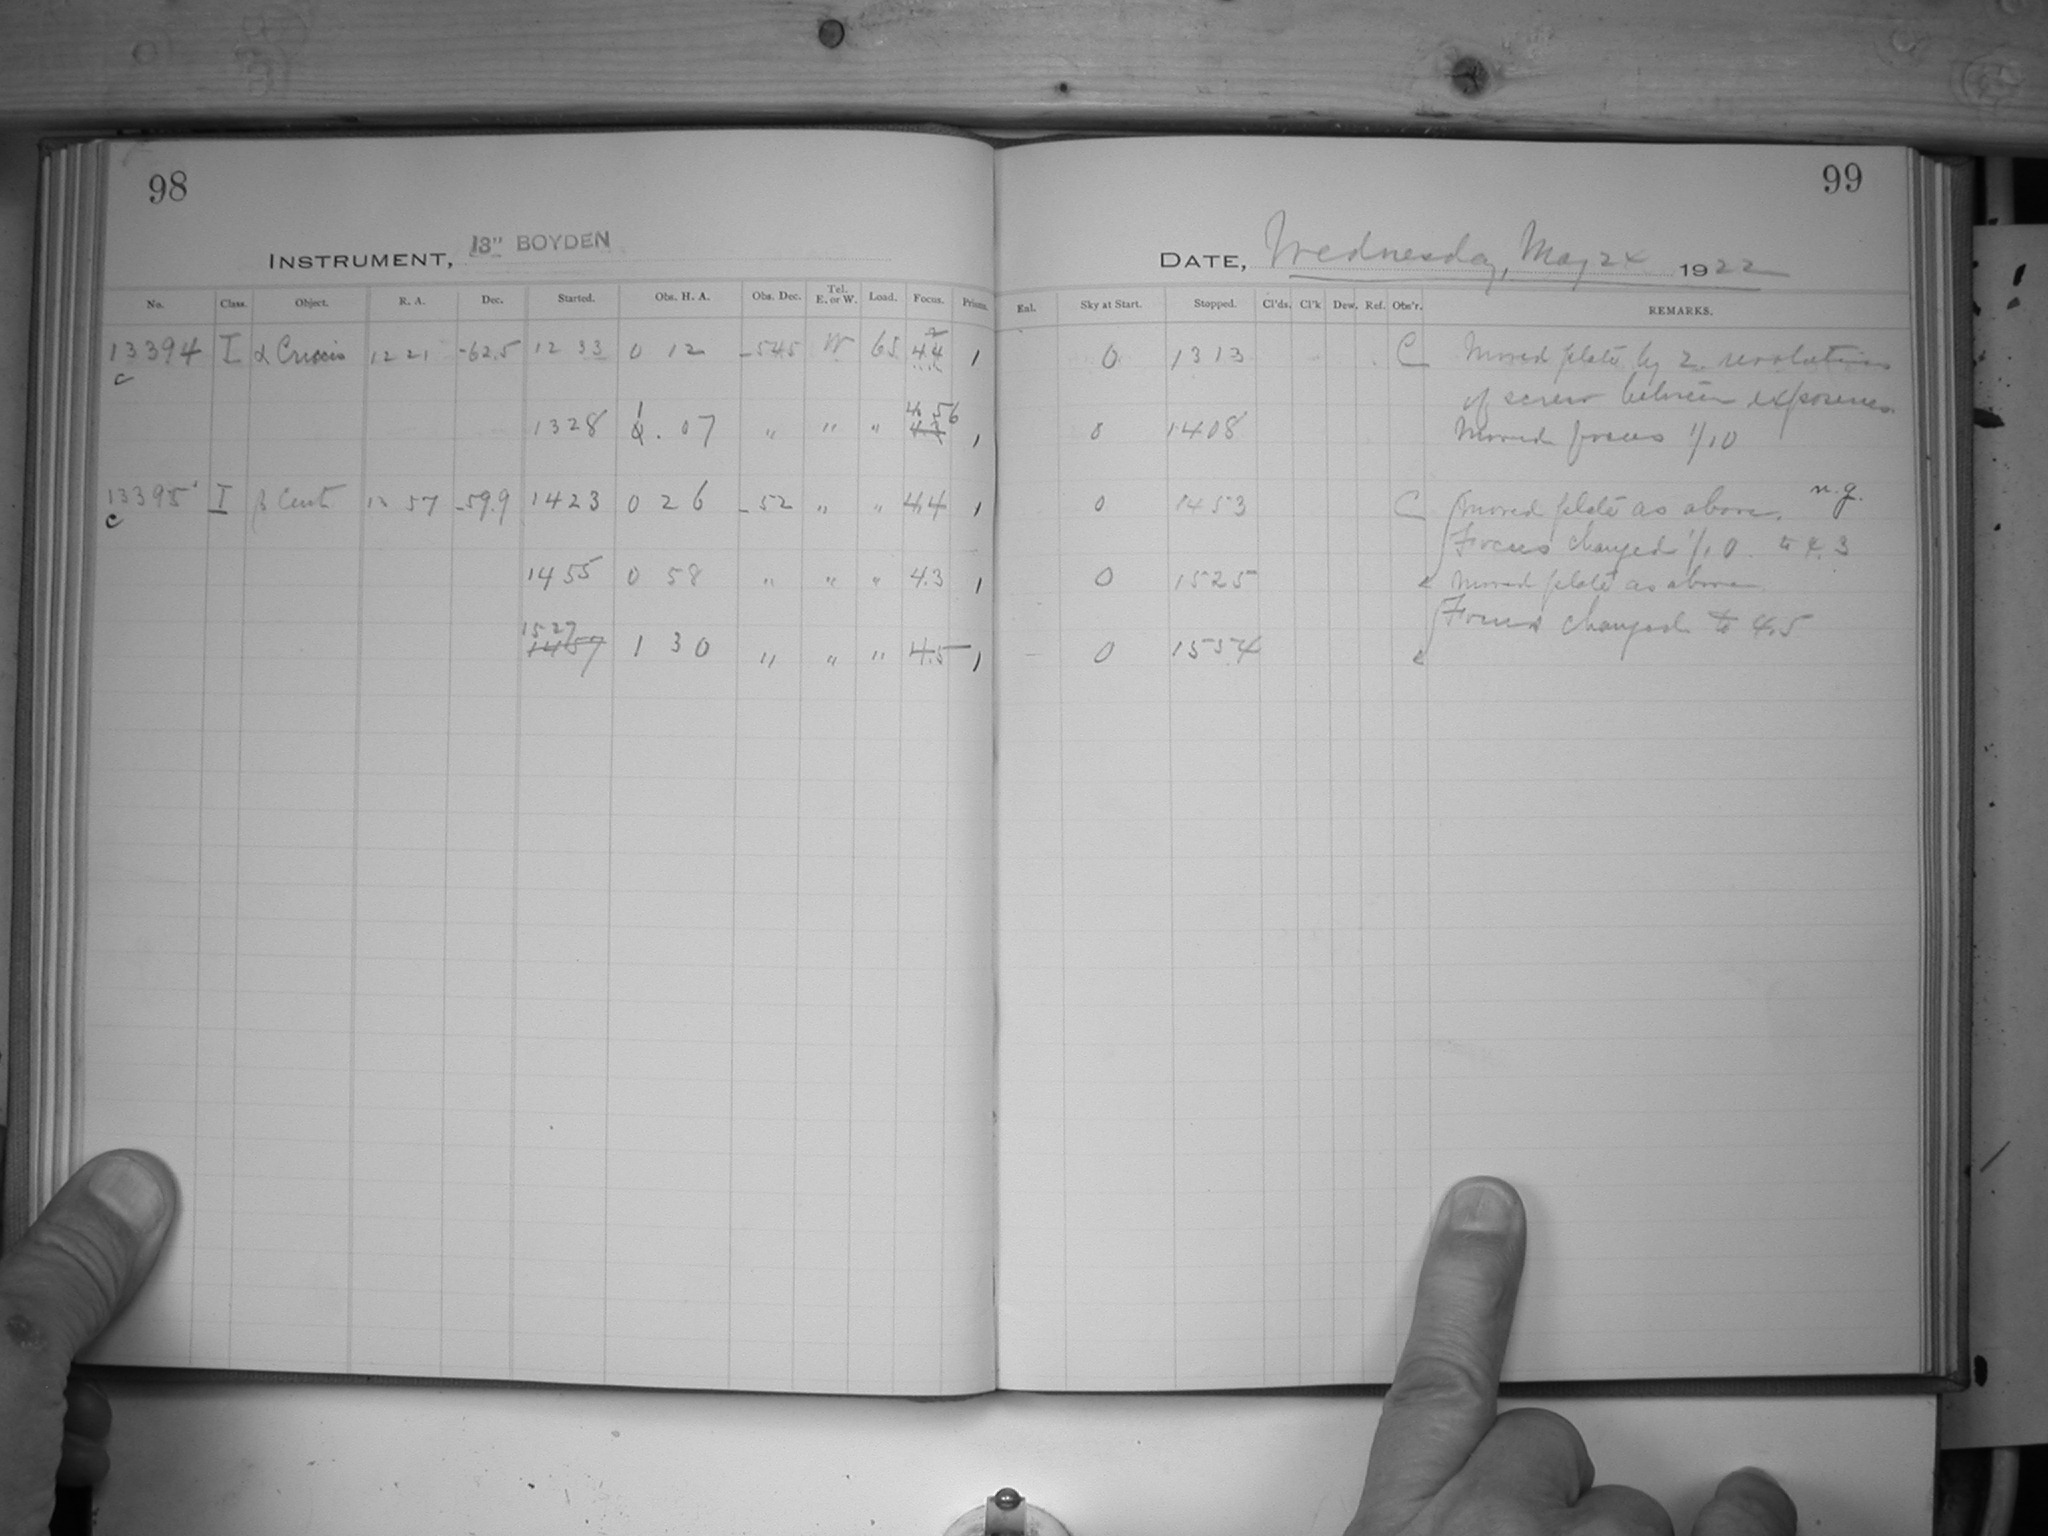 98
INSTRUMENT, 13" BOYDEN
No. Class. Object. R. A. Dec. Started. Obs. H. A. Obs. Dec. Tel. E. or W. Load. Focus. Prisms.
13394 I α Crucis 12 21 -62.5 12 33 0 12 -54.5 W 65 4.4 1
c
1328 1 07 " " " 4.56 1
13395 I β Cent 13 57 -59.9 1423 0 26 -52 " " 4.4 1
c
1455 0 58 " " " 4.3 1
1527
1457 1 30 " " " 4.5 1
99
DATE, Wednesday, May 24 1922
Enl. Sky at Start. Stopped. Cl'ds. Cl'k Dew. Ref. Obs'r. REMARKS.
0 1313 C Moved plate by 2 revolutions
of screw between exposures
0 1408 Moved focus 1/10
0 1453 C Moved plate as above. n.g.
Focus changed 1/10 to 4.3
0 1525 Moved plate as above
Focus changed to 4.5
0 1554